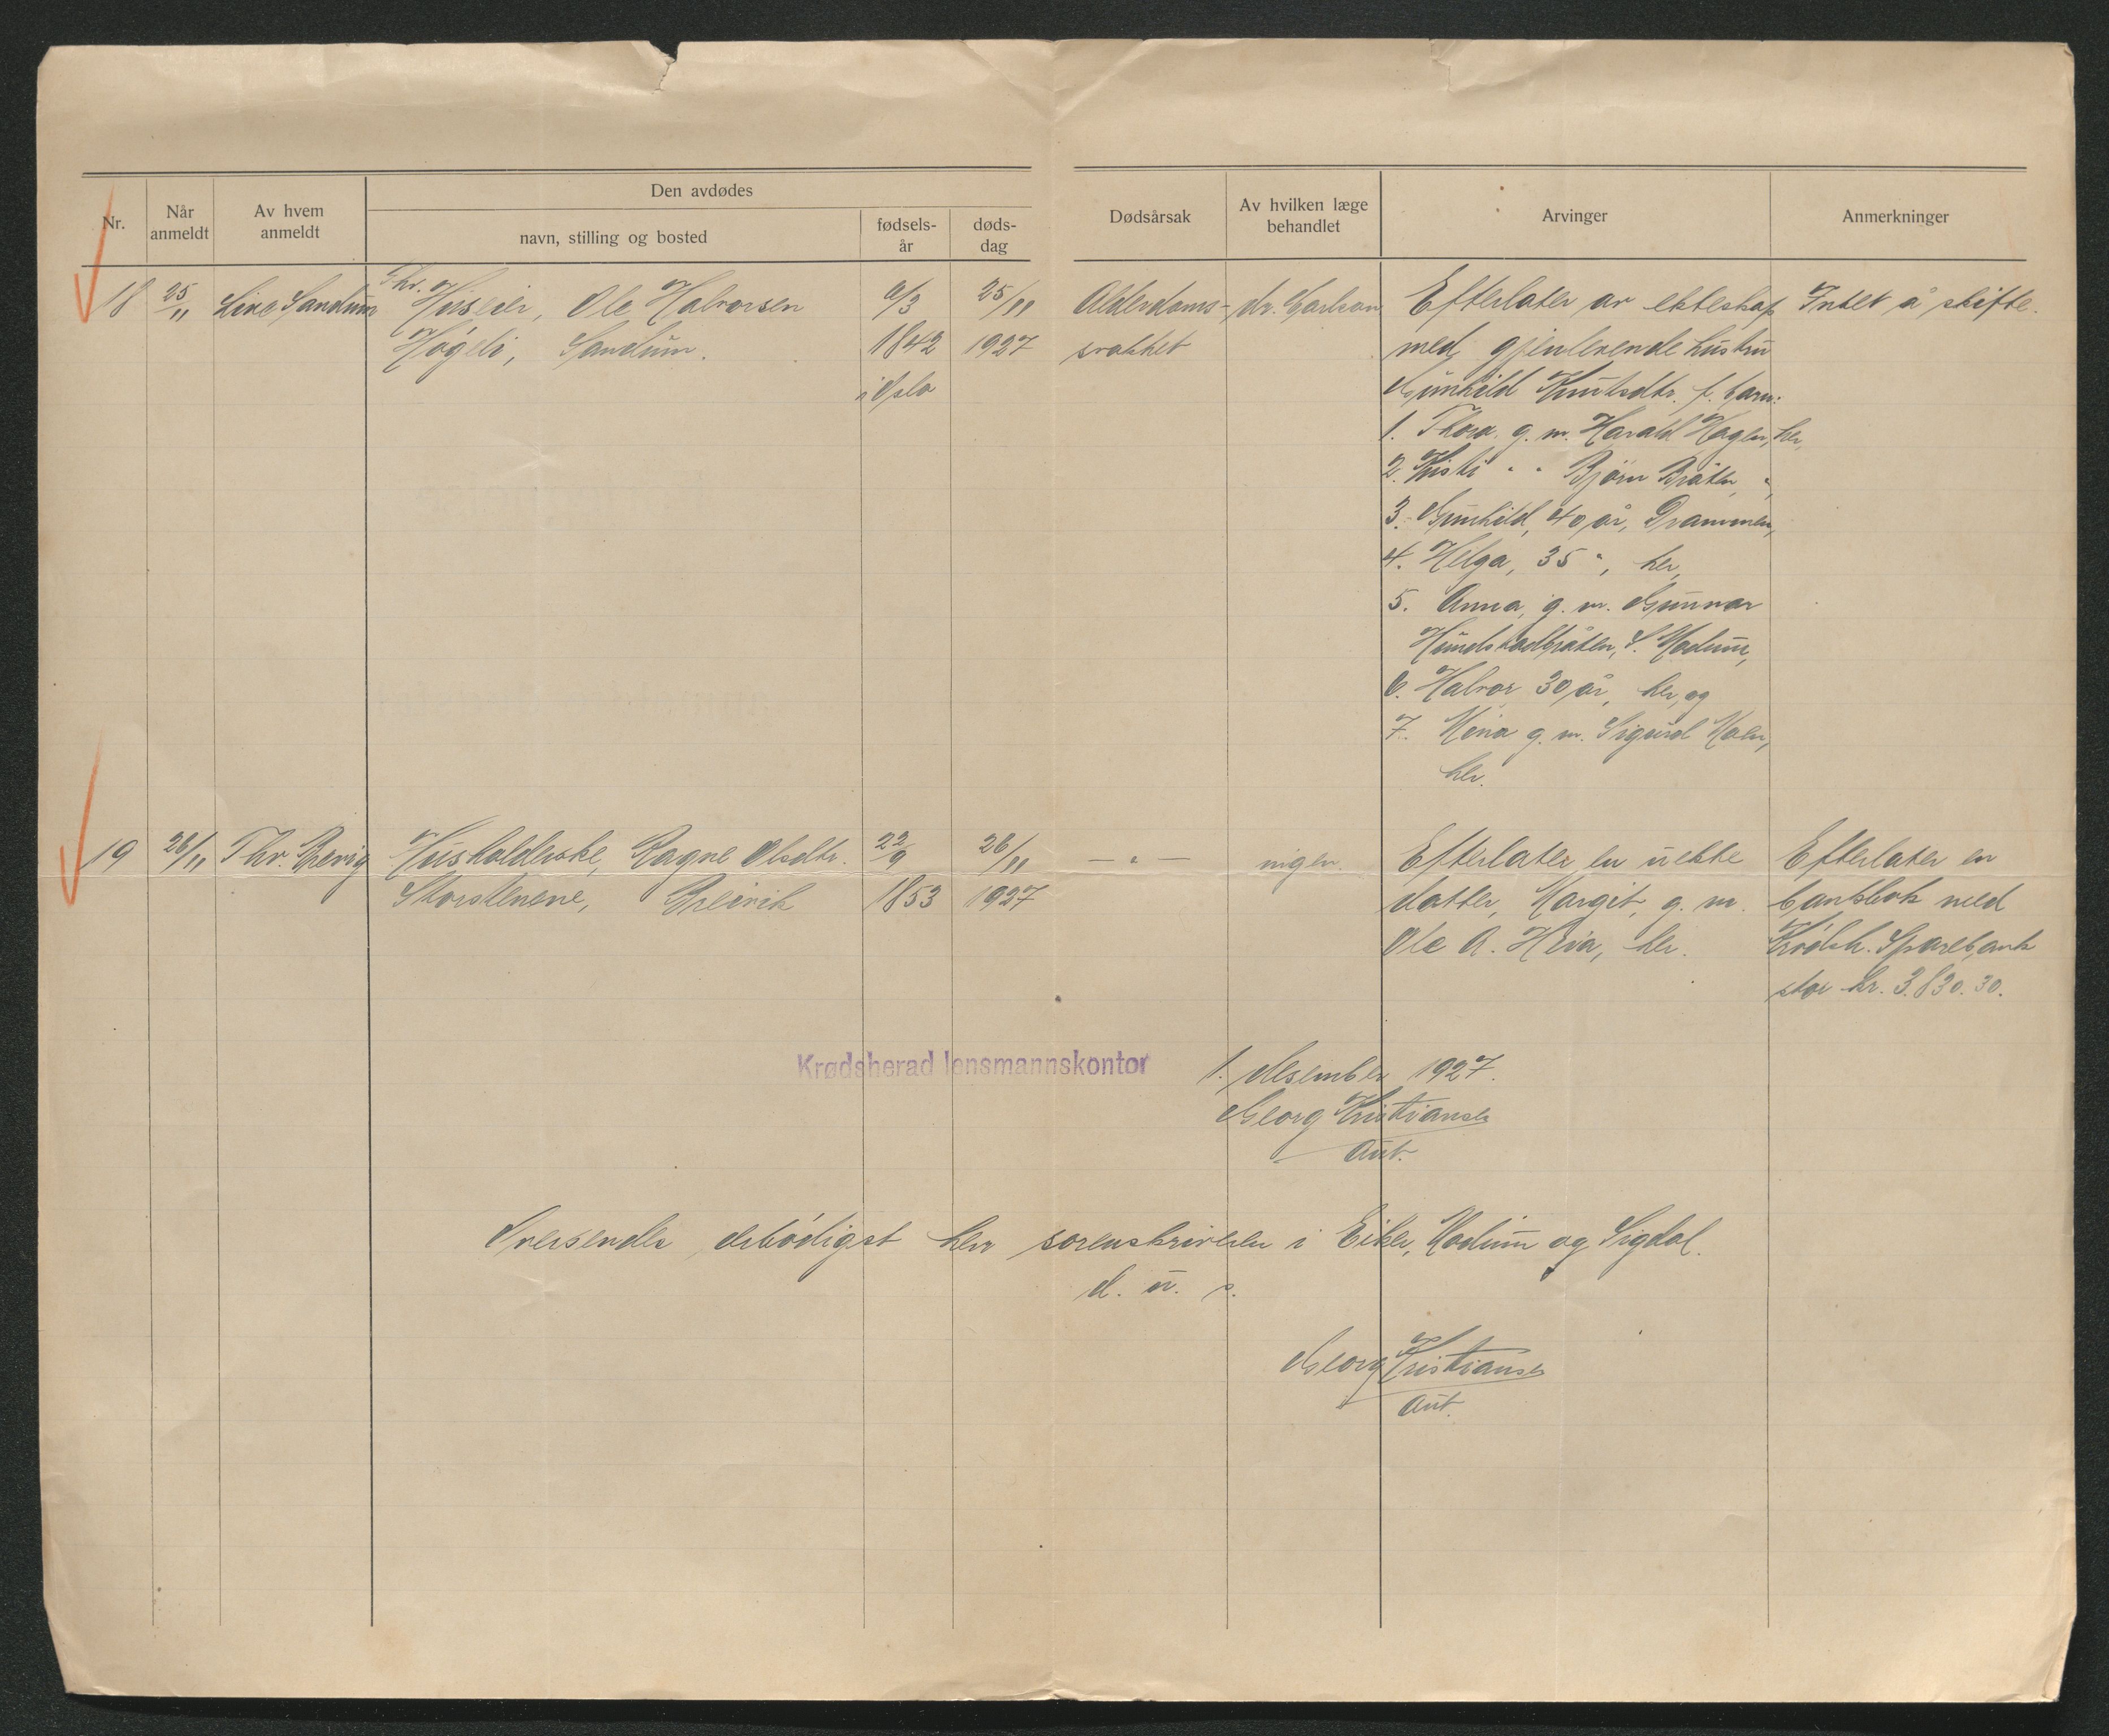 Den avdødes
Nr.
Når anmeldt
Av hvem anmeldt
navn, stilling og bosted
fødsels-år
døds-dag
Dødsårsak
Av hvilken læge behandlet
Arvinger
Anmerkninger
18 25/11 Line Sandum Thv. Huseier, Ole Halvorsen 25/11 Alderdoms- dr. Carlson Efterlater av ekteskap Intet å skifte.
Høgeli, Sandum. 1842 1927 svakhet med gjenlevende hustru
i Oslo Gunhild Knutsdtr. f. barn:
1. Thora g. m. Harald Hagen, her,
2. Kristi " " Bjørn Bråten, ",
3. Gunhild, 40 år, Drammen,
4. Helga, 35 ", her,
5. Anna, g. m. Gunnar
Hundstadbråten, S. Modum,
6. Halvor 30 år, her, og
7. g. m. Sigurd Moen,
her.
19 26/11 Thv. Husholderske, Ragne Olsdtr. 22/9 26/11 — " — ingen. Efterlater en uekte Efterlater en
Storstenene, Greivik 1853 1927 datter, Margit, g. m. bankbok med
Ole A. her. Krødsh. Sparebank
stor kr. 3.830.30.
Krødsherad lensmannskontor 1. desember 1927.
Georg Kristiansen
Aut.
Oversendes ærbødigst herr sorenskriveren i Eiker, Modum og Sigdal.
d. u. s.
Georg Kristiansen
Aut.